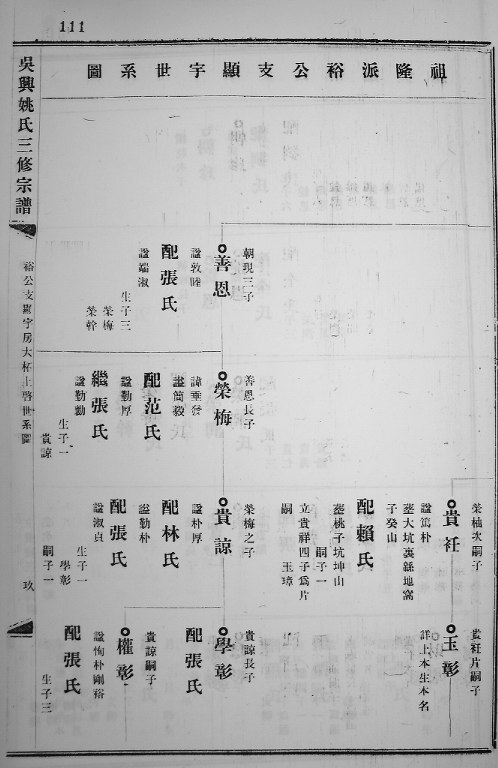 111
祖隆派裕公支顯宇世系圖
吳興姚氏三修宗譜
裕公支顯宇房大杯上啓世系圖
玖
朝現三子
善恩
諡敦睦
配張氏
諡端淑
生子三
榮梅
榮幹
善恩長子
榮梅
諱垂發
諡簡毅
配范氏
諡勤厚
繼張氏
諡勤勷
生子一
貴諒
榮柚次嗣子
貴衽
諡篤朴
塟大坑裏絲地窩
子癸山
配賴氏
塟桃子坑坤山
嗣子一
立貴祥四子為片
嗣
玉璋
榮梅之子
貴諒
諡朴厚
配林氏
諡勤朴
配張氏
諡淑貞
生子一
學彰
嗣子一
貴衽片嗣子
玉彰
詳上本生本名
貴諒長子
學彰
配張氏
貴諒嗣子
權彰
諡恂朴剛裕
配張氏
生子三